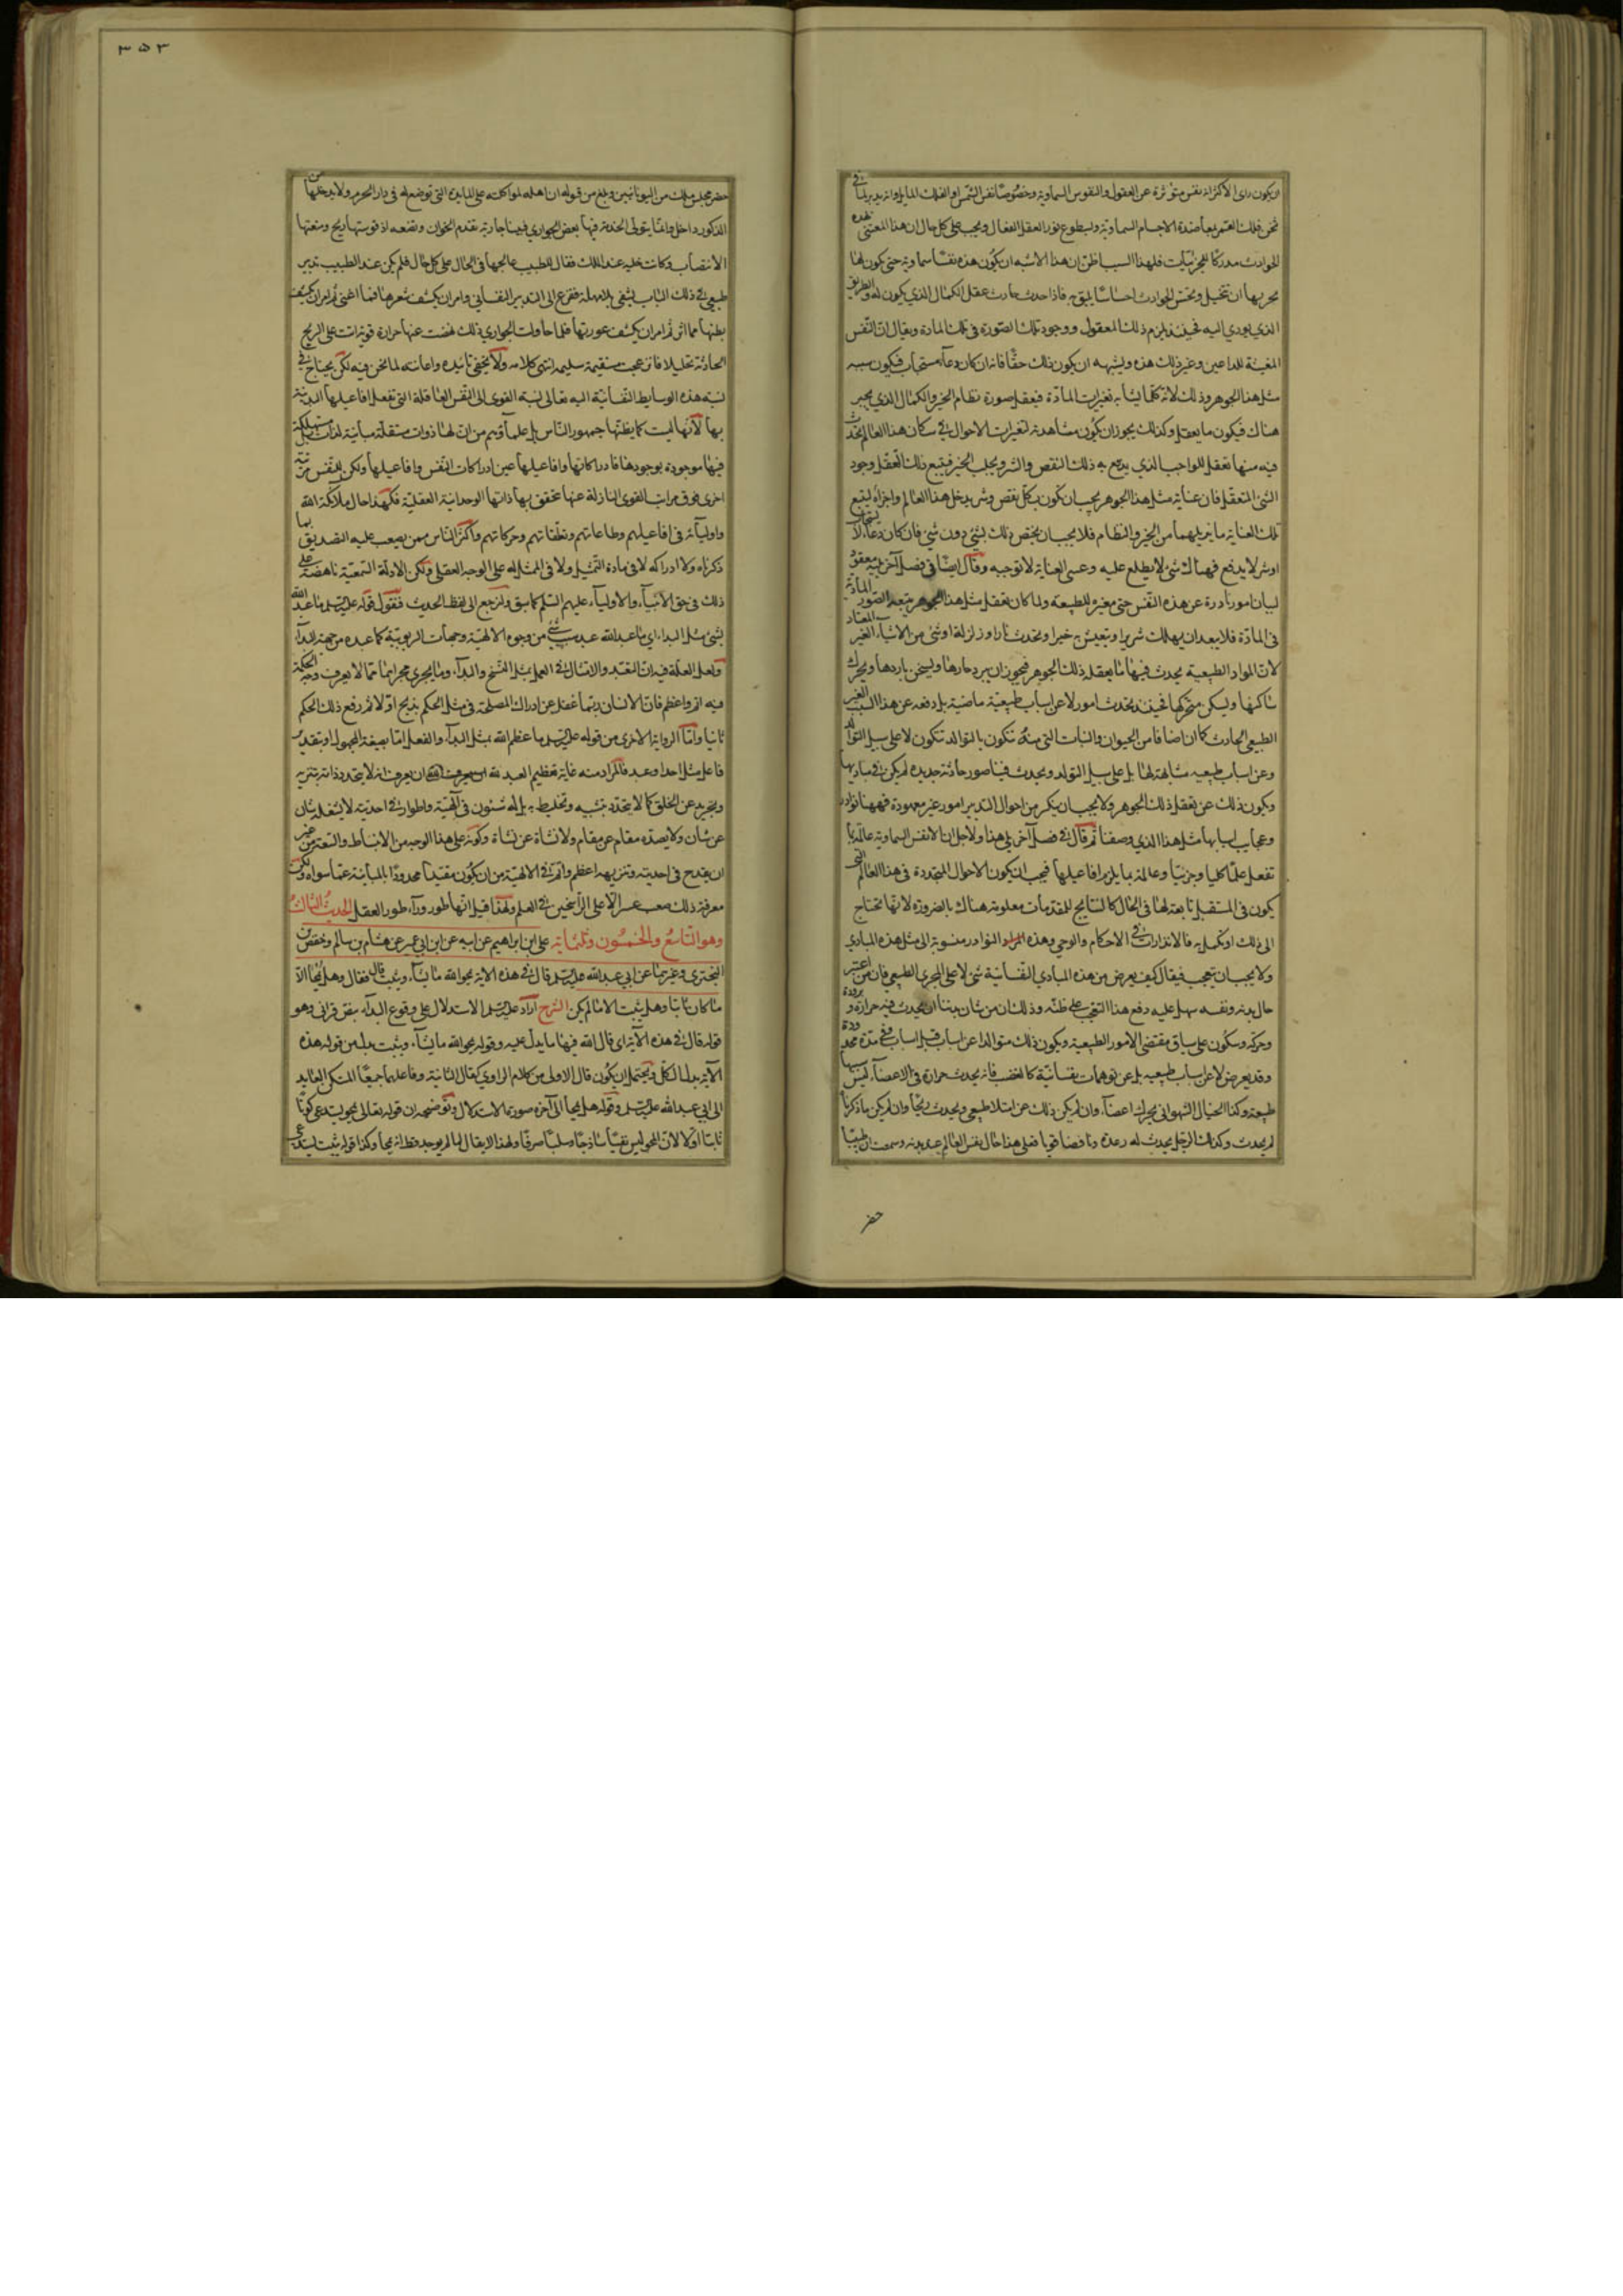 ويكون راى الاكثر انه نفس متوثرة عن العقول والنفوس السماوية وخصوصا نفس الشمس او الفلك المايل وانه يدبر لما في
تحت فلك القمر بمعاضدة الاجسام السماوية ولسطوع نور العقل الفعال ويجب على كل حال ان هذا المعتنى بهذه
الحوادث مدركا للجزئيات فلهذا السبب اظن ان هذا الاشبه ان يكون هذه نفسا سماوية حتى يكون لها
بجرمها ان تتخيل وتحس الحوادث احساسا يليق به فاذا حدث حادث عقل الكمال الذي يكون له والطريق
الذي يودي اليه فحينئذ يلزم ذلك المعقول ووجود تلك الصورة في تلك المادة ويقال ان النفس
المغيثة للداعين وغير ذلك هذه ويشبه ان يكون ذلك حقا فانه ان كان دعاء مستجاب فيكون سببه
مثل هذا الجوهر وذلك لانه كلما يشاهد تغيرات المادة فيعقل صورة نظام الخير والكمال الذي يجب
هناك فيكون ما يعقل وكذلك يجوز ان يكون مشاهدته لتغيرات الاحوال في سكان هذا العالم يحدث
فيه منها تعقل للواجب الذي يدفع به ذلك النقص والشر ويجلب الخير فيتبع ذلك التعقل وجود
الشئ المتعقل فان عناية مثل هذا الجوهر يجب ان تكون بكل نقص وشر يدخل هذا العالم واجزاءه ليتبع
تلك العناية ما يزيلهما من الخير والنظام فلا يجب ان يختص ذلك بشئ دون شئ فان كان دعاء لا يستجاب
اوشر لا يدفع فهناك شئ لا يطلع عليه وعسى العناية لا توجبه وقال ايضا في فصل آخر
لبيان امور نادرة عن هذه النفس حتى مغيرة للطبيعة ولما كان تعقل مثل هذا الجوهر يتبعه الصور المادية
في المادة فلا يبعد ان يهلك شرير او يتعيش به خير او يحدث نارا او زلزلة او شئ من الاشياء الغير المعتاد
لان المواد الطبيعية يحدث فيها ما يعقله ذلك الجوهر فيجوز ان يبرد حارها ويسخن باردها ويحرك
ساكنها ويسكن متحركها فحينئذ يحدث امور لا عن اسباب طبيعية ماضية بل دفعه عن هذا السبب الغير
الطبيعي الحادث كما ان اصنافا من الحيوان والنبات التي منه تكون بالتوالد تتكون لا على سبيل التوالد
وعن اسباب طبيعيه مشابهة لها بل على سبيل التولد ويحدث فينا صور حادثة جديده لم يكن في مباديها
ويكون ذلك عن تعقل ذلك الجوهر ولا يجب ان ينكر من احوال التدبير امور غير معهودة فههنا نوادر
وعجايب اسبابها مثل هذا الذي وصفنا ثم قال في فصل آخر يلي هذا ولاجل ان الانفس السماوية عالمة بما
تفعل علما كليا وجزئيا وعالمة بما يلزم افاعيلها فيجب ان يكون الاحوال المتجددة في هذا العالم التي
يكون في المستقبل تابعة لها في الحال كالنتايج للمقدمات معلومة هناك بالضرورة لانها تحتاج
الى ذلك او تكمل به فالانذارات في الاحكام والوحي وهذه المراد النوادر منسوبة الى مثل هذه المبادي
ولا يجب ان يتعجب فيقال كيف يعرض من هذه المبادي النفسانية شئ لا على المجرى الطبيعي فان من اعتبر
حال بدنه ونفسه سهل عليه دفع هذا التعجب على ظنه وذلك ان من شان بدننا ان يحدث فيه حرارة وبرودة
وحركة وسكون على سياق مقتضى الامور الطبيعية ويكون ذلك متوالدا عن اسباب قبل اسباب في مدة محدودة
وقد يعرض لا عن اسباب طبيعيه بل عن توهمات نفسانية كالغضب فانه يحدث حرارة في الاعضاء ليس سببها
طبيعة وكذا الخيال الشهواني يحرك اعضاء وان لم يكن ذلك عن امتلا طبيعي ويحدث ريحا وان لم يكن ما ذكرنا
لم يحدث وكذلك الرجل يحدث له رعدة ونافضا قويا فعلى هذا حال نفس العالم عند بدنه وسمعت ان طبيبا
حضر
٣٥٣
حضر مجلس ملك من اليونانيين وبلغ من قبوله ان اهله لمواكلته على المايدة التي توضع له في دار الحرم ولا يدخلها من
الذكور داخل وانما يتولى الخدمة فيها بعض الجواري فبينا جارية تقدم الخوان وتضعه اذ قوستها ريح ومنعتها
الانتصاب وكانت خليه عند الملك فقال للطبيب عالجها في الحال على كل حال فلم يكن عند الطبيب تدبير
طبيعي في ذلك الباب يشفي بلا مهلة ففزع الى التدبير النفساني وامر ان يكشف شعرها فما اغنى ثم امر ان يكشف
بطنها فما اثر ثم امر ان يكشف عورتها فلما حاولت الجواري ذلك نهضت عنها حرارة قوية اتت على الريح
الحادثة تحليلا فانزعجت مستقيمة سليمه انتهى كلامه ولا يخفى تائيده واعانته لما نحن فيه لكن يحتاج في
نسبة هذه الوسايط النفسانية اليه تعالى نسبة القوى الى النفس العاقلة التي تفعل افاعيلها البدنية
بها لانها ليست كما يظنها جمهور الناس بل علماؤهم من ان لها ذوات مستقلة مباينة لذات بل مستهلكة
فيها موجودة بوجودها فادراكاتها وافاعيلها عين ادراكات النفس وافاعيلها ولكن للنفس مرتبة
اخرى فوق مراتب القوى النازلة عنها تحقق بها ذاتها الوحدانية العقلية فكهذا حال ملائكة الله
واوليائه في افاعيلهم وطاعاتهم وتعقلاتهم وحركاتهم واكثر الناس ممن يصعب عليه التصديق بما
ذكرناه ولا ادراكه لا في مادة التمثيل ولا في الممثل له على الوجه العقلي ولكن الادلة السمعية ناهضة على
ذلك في حق الانبياء والاولياء عليهم السلم كما سبق ولنرجع الى لفظ الحديث فنقول قوله عليه السلم ما عبد الله
بشئ مثل البداء اي ما عبد الله عبد بشئ من وجوه الالهية وجهات الربوبية كما عبده من جهة البداء
ولعل العلة فيه ان التعبد والامتثال في العمل بمثل النسخ والبداء وما يجري مجراهما مما لا يعرف وجه الحكمة
فيه اتم واعظم فان الانسان ربما غفل عن ادراك المصلحة في مثل الحكم بذبح اولا ثم رفع ذلك الحكم
ثانيا واما الرواية الاخرى من قوله عليه السلم ما عظم الله بمثل البداء والفعل اما بصيغة المجهول او بتقدير
فاعل مثل احد او عبد فالمراد منه غاية تعظيم العبد لله ان يعرف انه لا يتحدد ذاته بتنزيه
وتجريد عن الخلق كما لا يتحدد بتشبيه وتخليط به بل له شئون في آلهية واطوار في احدية لا يشغله شان
عن شان ولا يصده مقام عن مقام ولا نشاة عن نشاة وكونه على هذا الوجه من الانبساط والسعة من غير
ان يقدح في احديته وتنزيهه اعظم واتم في الالهية من ان يكون مقيدا محدودا بالمباينة عما سواه ولكن
معرفة ذلك صعب عسر الا على الراسخين في العلم ولهذا قيل انها طور وراء طور العقل الحديث الثالث
وهو التاسع والخمسون وثلثمائة على ابن ابراهيم عن ابيه عن ابن ابي عمير عن هشام بن سالم وحفص بن
البختري وغيرهما عن ابي عبد الله عليه السلم قال في هذه الاية يمحو الله ما يشاء ويثبت قال فقال وهل يمحا الا
ما كان ثابتا وهل يثبت الا ما لم يكن الشرح اراد عليه السلم الاستدلال على وقوع البداء بنص قراني وهو
قوله قال في هذه الآية اي قال الله فيها ما يدل عليه وقوله يمحو الله ما يشاء ويثبت بدل من قوله هذه
الآية بدل الكل ويحتمل ان يكون قال الاولى من كلام الراوي كقال الثانية وفاعلهما جميعا المستكن العايد
الى ابي عبد الله عليه السلم وقوله هل يمحا الى آخره صورة الاستدلال وتوضيحه ان قوله تعالى يمحو يستدعي كونا
ثابتا اولا لان المحو ليس نفيا ساذجا وسلبا صرفا ولهذا لا يقال لما لم يوجد قط انه يمحا وكذا قوله يثبت يستدعي